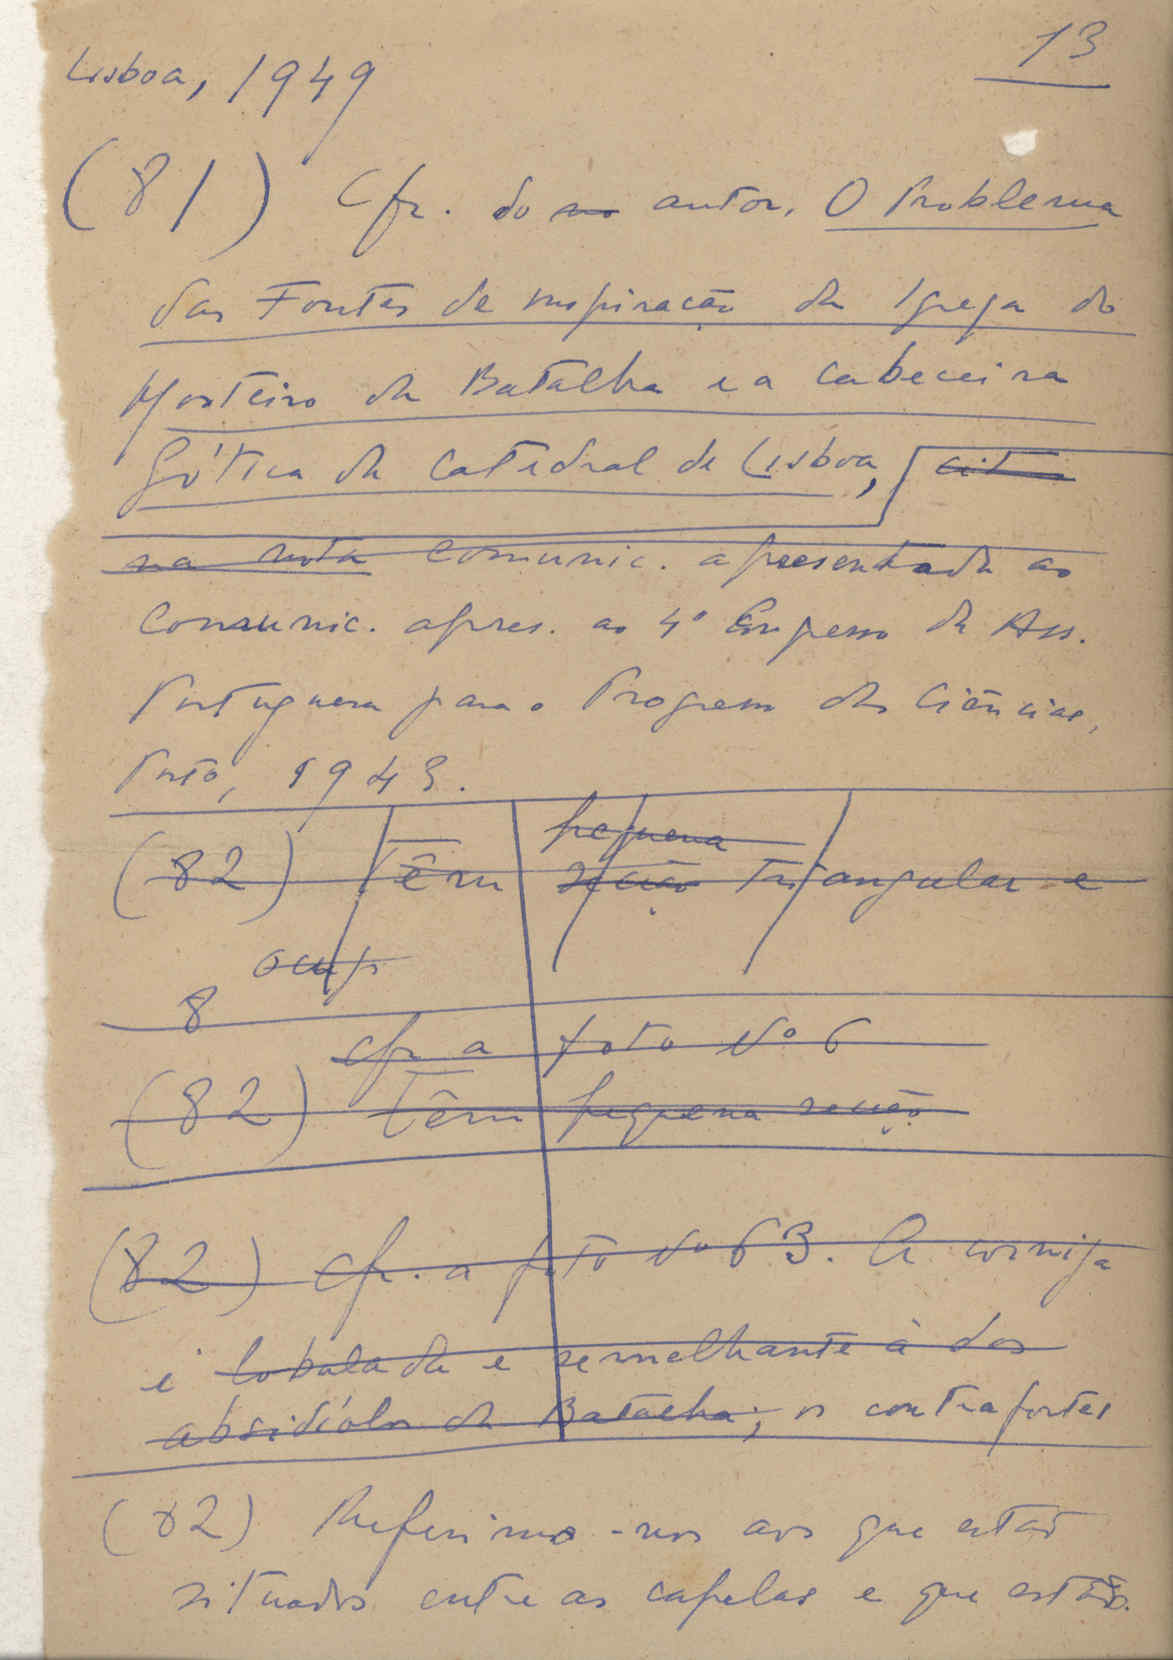 13
Lisboa, 1949
(81) Cfr. do no autor. O Problema
das Fontes de inspiração da Igreja do
Mosteiro da Batalha e a cabeceira
gótica da Catedral de Lisboa, cit
na nota comunic. apresentada ao
Comunic. apres. ao 4º Congresso da Ass.
Portuguesa para o Progresso das Ciências,
Porto, 1943.
pequena
(82) Têm secção triangular e
ocup
8
cfr a foto Nº 6
(82) Têm pequena secção
(82) Cfr. a foto Nº 63. A cornija
é lobulada e semelhante à dos
absidíolos da Batalha; os contrafortes
(82) Referimo-nos aos que estão
situados entre as capelas e que estão